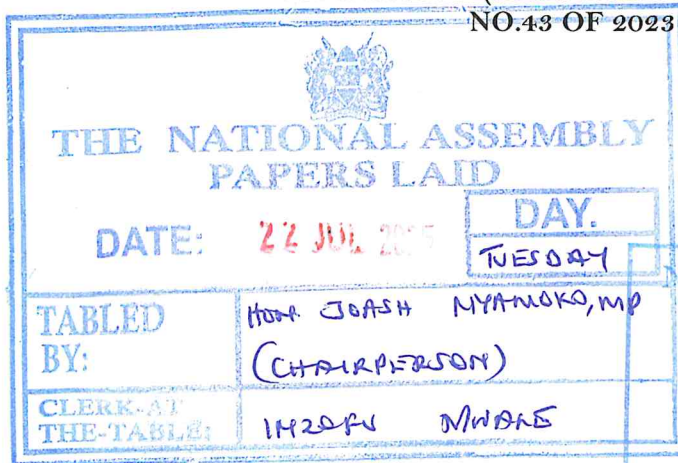 NO.43 OF 2023
THE NATIONAL ASSEMBLY
PAPERS LAID
DATE: 22 JUL
DAY.
TUESDAY
TABLED BY:
HON. JOASH NYAMOKO, MP
(CHAIRPERSON)
CLERK-AT THE-TABLE: